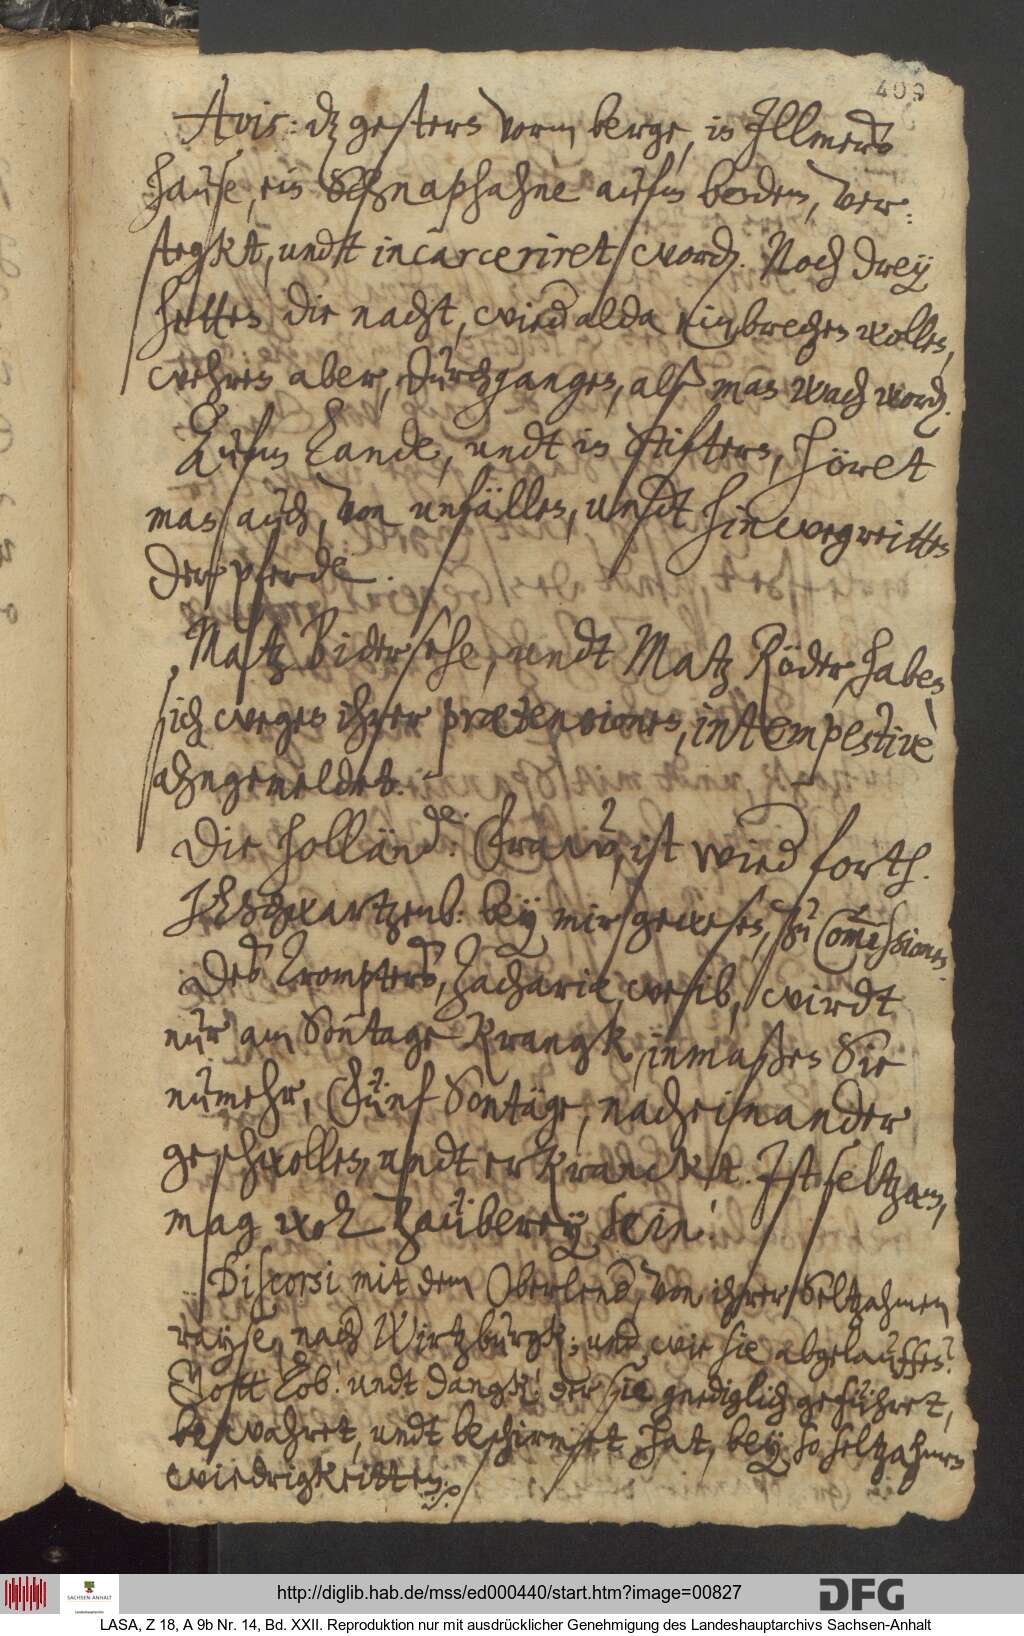 409
Avis: dz gestern vorm berge, in Illmers
hause, ein Schnaphahne aufm boden, ver¬
stegkt, undt incarceriret word. Noch drey
hetten die nacht, wied alda einbrechen wollen,
wehren aber, durchgangen, alß man wach word.
Aufm Lande, undt in Stiftern, höret
man auch, von unfällen, undt hinwegreitten
der pferde.
Matz Bidersehe, undt Matz Röder, haben
sich wegen ihrer prætensionen, intempestivè
ahngemeldet.
Die holländ. Fraw, ist wied forth.
Schwartzenb: bey mir gewesen, in Com̃issionen.
Des Trompters, Zachariæ, weib, wirdt
nur am Sontage Krangk, inmaßen Sie
numehr, Fünf Sontäge, nacheinander
geschwollen, undt erkranckt. Ist seltzam,
mag wol Zauberey sein!
Discorsi mit dem Oberlend, von ihrer Seltzahmen
rayse, nach Wirtzburgk; und, wie sie abgelauffen?
Gott Lob! undt dangk! der sie gnediglich geführet,
bewahret, undt beschirmet hat, bey so seltzahmen
wiedrigkeitten.
http://diglib.hab.de/mss/ed000440/start.htm?image=00827
SACHSEN-ANHALT
Landeshauptarchiv
DFG
LASA, Z 18, A 9b Nr. 14, Bd. XXII. Reproduktion nur mit ausdrücklicher Genehmigung des Landeshauptarchivs Sachsen-Anhalt